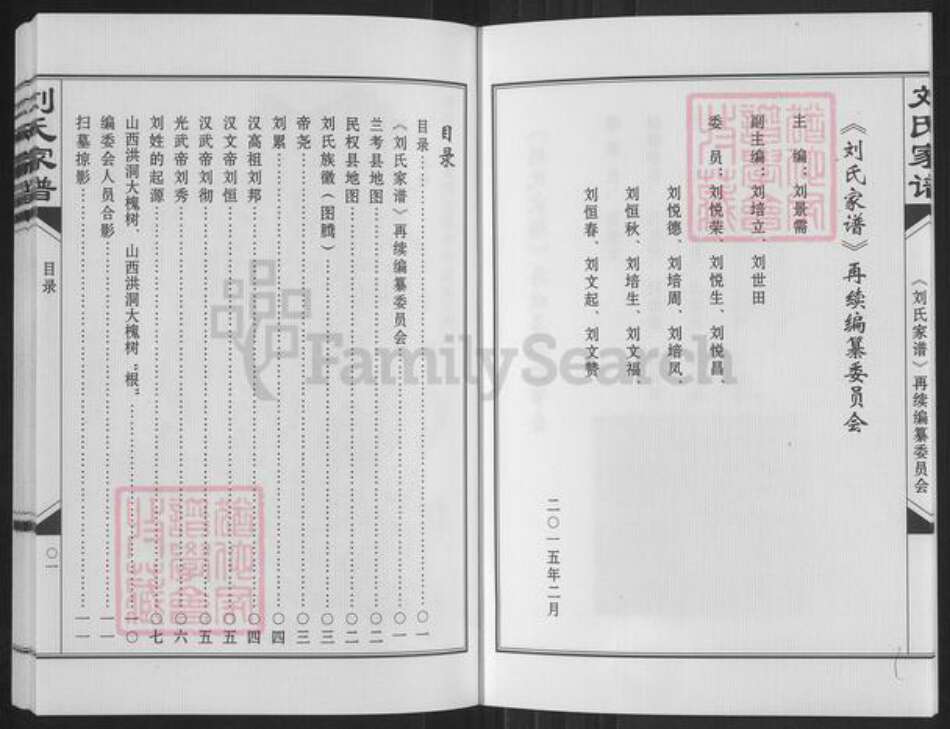 刘氏家谱
《刘氏家谱》再续编纂委员会
《刘氏家谱》再续编纂委员会
主 编：刘景需
副主编：刘培立、刘世田
委 员：刘悦荣、刘悦生、刘悦昌、
刘悦德、刘培周、刘培凤、
刘恒秋、刘培生、刘文福、
刘恒春、刘文起、刘文赞
二〇一五年二月
目录
目录……〇一
《刘氏家谱》再续编纂委员会……〇一
兰考县地图……〇二
民权县地图……〇二
刘氏族徽（图腾）……〇三
帝尧……〇三
刘累……〇四
汉高祖刘邦……〇四
汉文帝刘恒……〇五
汉武帝刘彻……〇五
光武帝刘秀……〇六
刘姓的起源……〇七
山西洪洞大槐树、山西洪洞大槐树“根”……一〇
编委会人员合影……一一
扫墓掠影……一一
刘氏家谱
目录
〇一
FamilySearch